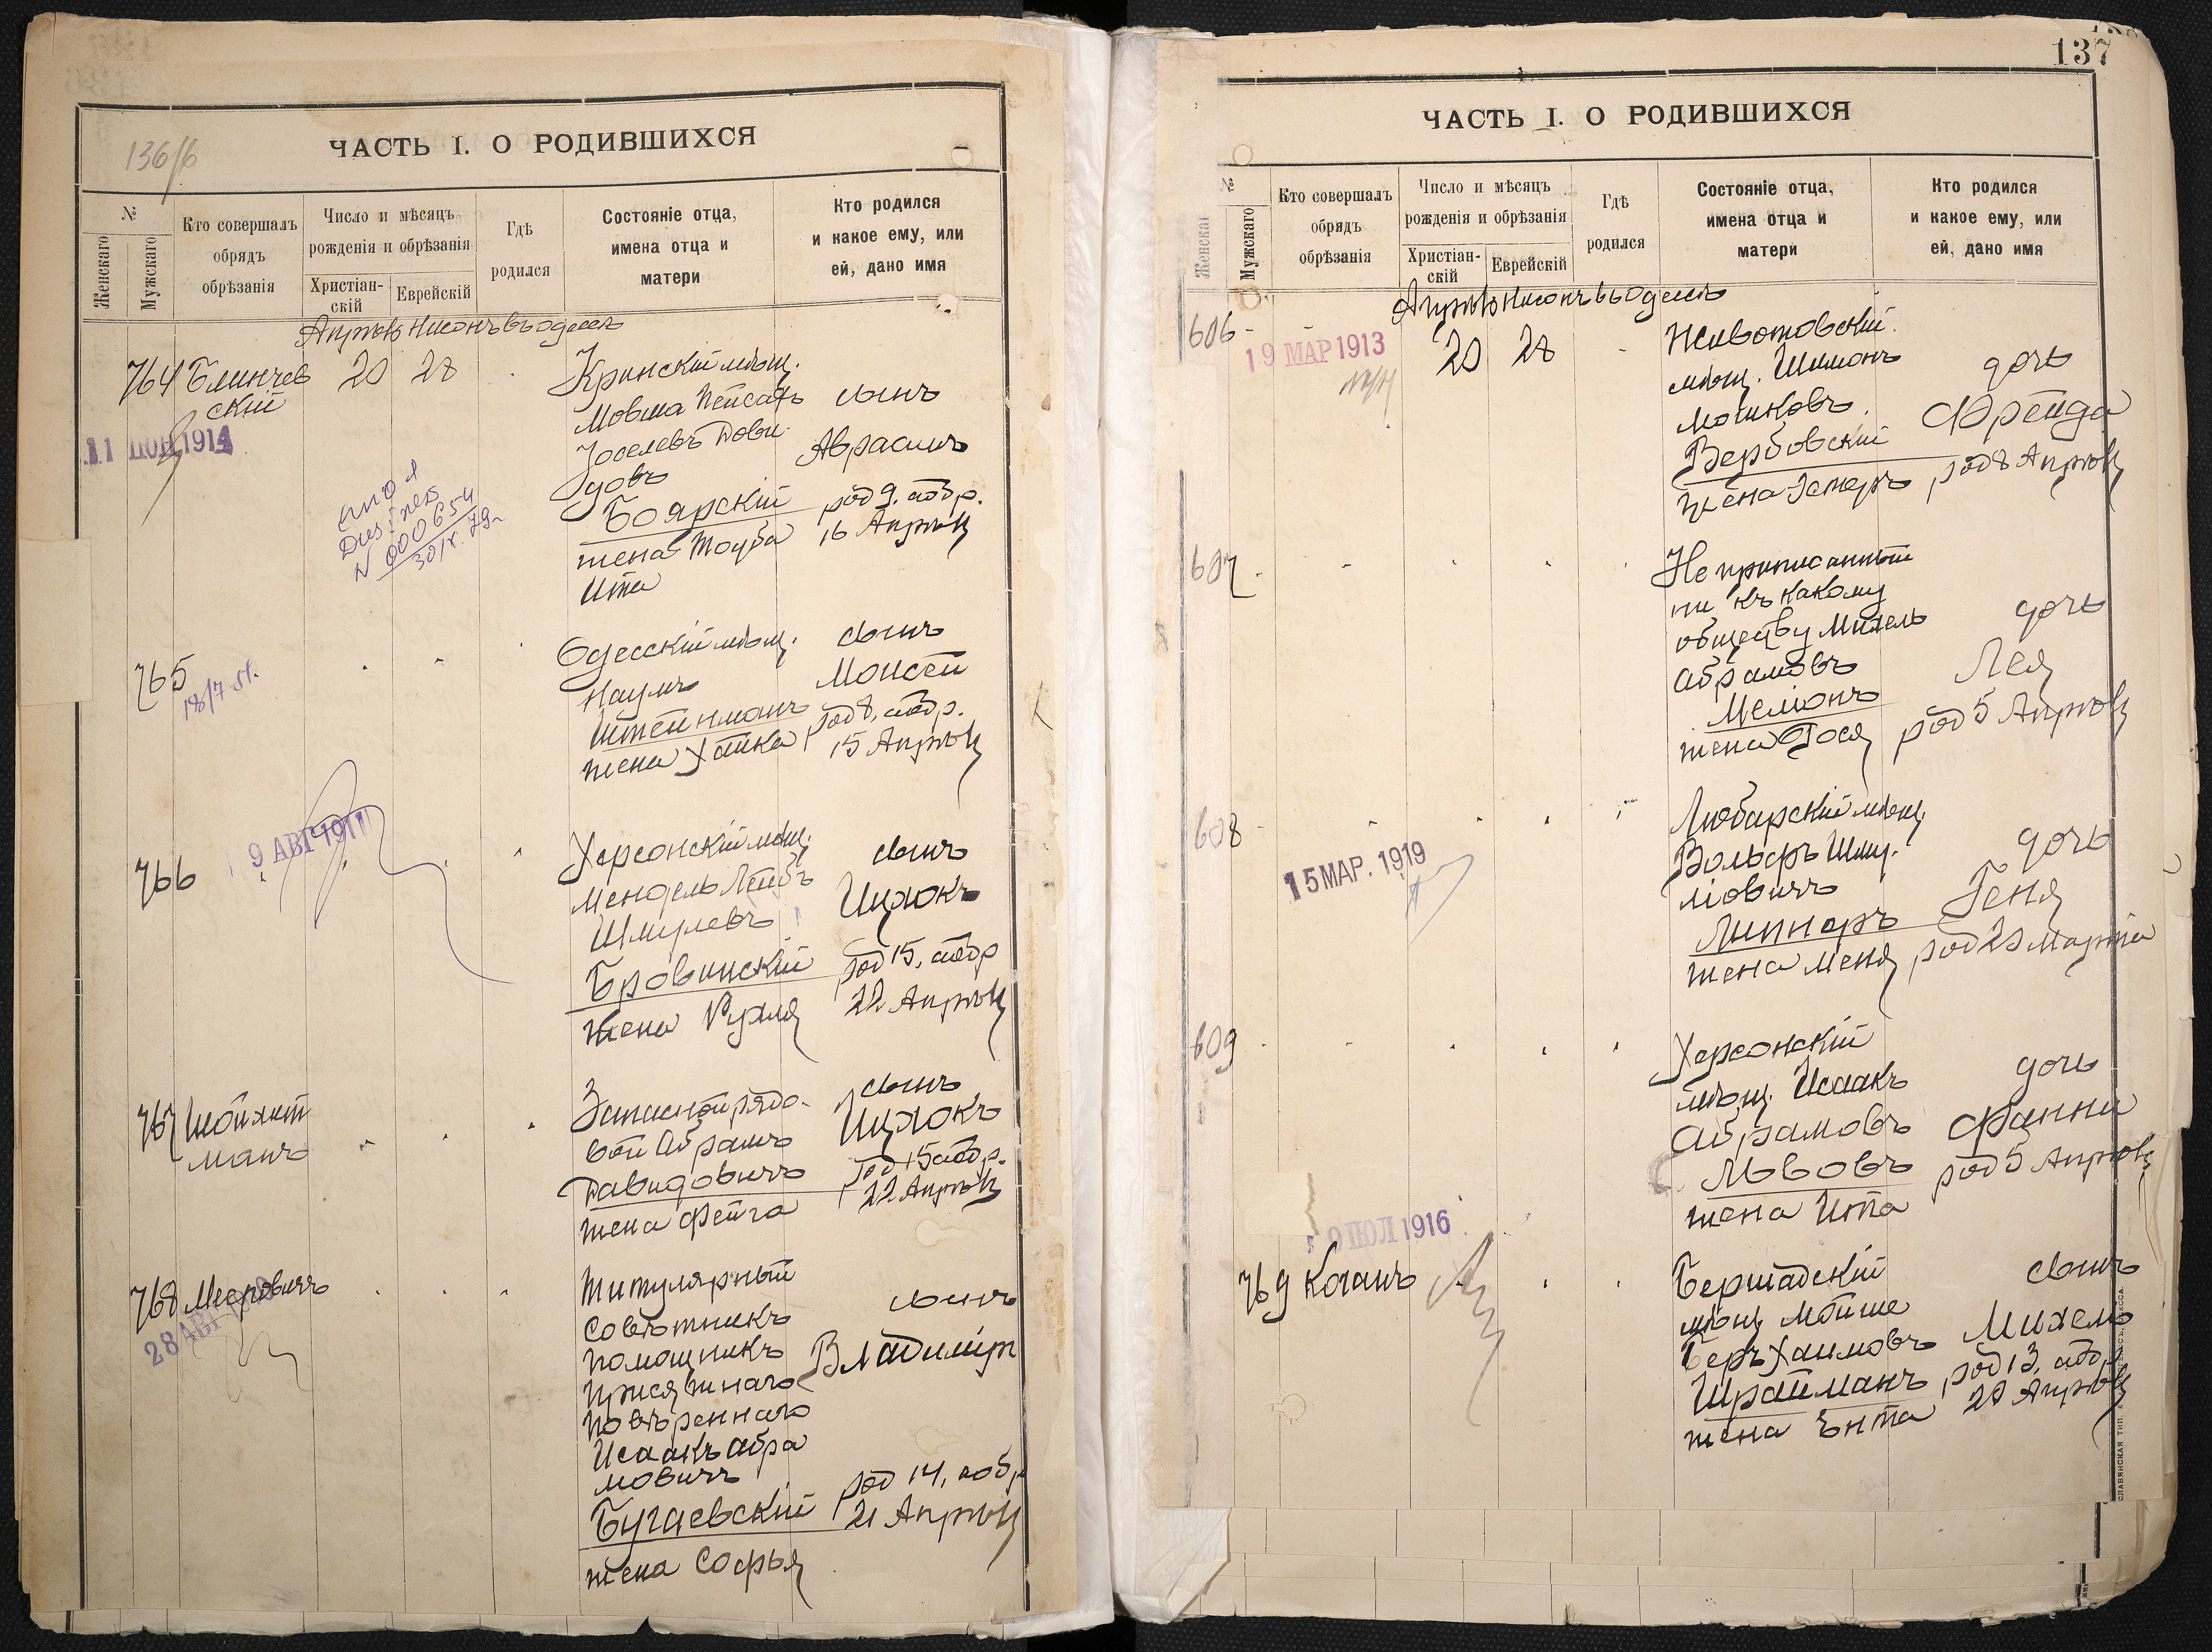 136/б
ЧАСТЬ I. О РОДИВШИХСЯ
№
Женскаго
Мужскаго
Кто совершалъ
обрядъ
обрѣзанія
Число и мѣсяцъ
рожденія и обрѣзанія
Христіан-
скій
Еврейскій
Гдѣ
родился
Состояніе отца,
имена отца и
матери
Кто родился
и какое ему, или
ей, дано имя
Апрѣль Нисонъ въ Одессѣ
764 Блинчев
скій
20 28
11 1914
000654
Кринскій мѣщ.
Мовша Пейсахъ
Іоселевъ Дови-
довъ
Боярскій
жена Тоуба
Ита
сынъ
Авраамъ
род 9, а обр.
16 Апрѣля
765
18/7 51.
Одесскій мѣщ.
Наумъ
Штейнманъ
жена Хайка
сынъ
Моисей
род 8, а обр.
15 Апрѣля
766
9 АВГ 1911
Херсонскій мѣщ.
Мендель Лейбъ
Шмулевъ
Бровинскій
жена Рухля
сынъ
Ицхокъ
род 15, а обр
22 Апрѣля
767 Шойхет
манъ
Запасной рядо-
вой Абрамъ
Давидовичъ
жена Фейга
сынъ
Ицхокъ
род 15 а обр.
22 Апрѣля
768 Мееровичъ
28 АВГ
Титулярный
совѣтникъ
помощникъ
присяжнаго
повѣреннаго
Исаакъ Абра
мовичъ
Бугаевскій
жена Софья
сынъ
Владиміръ
род 14, а обр
21 Апрѣля
137
ЧАСТЬ I. О РОДИВШИХСЯ
№
Женскаг
Мужскаго
Кто совершалъ
обрядъ
обрѣзанія
Число и мѣсяцъ
рожденія и обрѣзанія
Христіан-
скій
Еврейскій
Гдѣ
родился
Состояніе отца,
имена отца и
матери
Кто родился
и какое ему, или
ей, дано имя
Апрѣль Нисонъ въ Одессѣ
606
19 МАР 1913
20 28
Животовскій
мѣщ. Шимонъ
Мошковъ
Вербовскій
жена Эстеръ
дочь
Фрейда
род 8 Апрѣля
607
Не приписанный
ни къ какому
обществу Михель
Абрамовъ
Меліонъ
жена Гося
дочь
Лея
род 5 Апрѣля
608
15 МАР. 1919
Любарскій мѣщ.
Вольфъ Шму-
ліовичъ
Липнеръ
жена Меня
дочь
Геня
род 20 Марта
609
Херсонскій
мѣщ. Исаакъ
Абрамовъ
Львовъ
жена Ита
дочь
Фанни
род 5 Апрѣля
ІЮЛ 1916
769 Коганъ
Бершадскій
мѣщ. Мойше
Беръ Хаимовъ
Шрайманъ
жена Ента
сынъ
Михель
род 13, а обр
20 Апрѣля
СЛАВЯНСКАЯ ТИП.